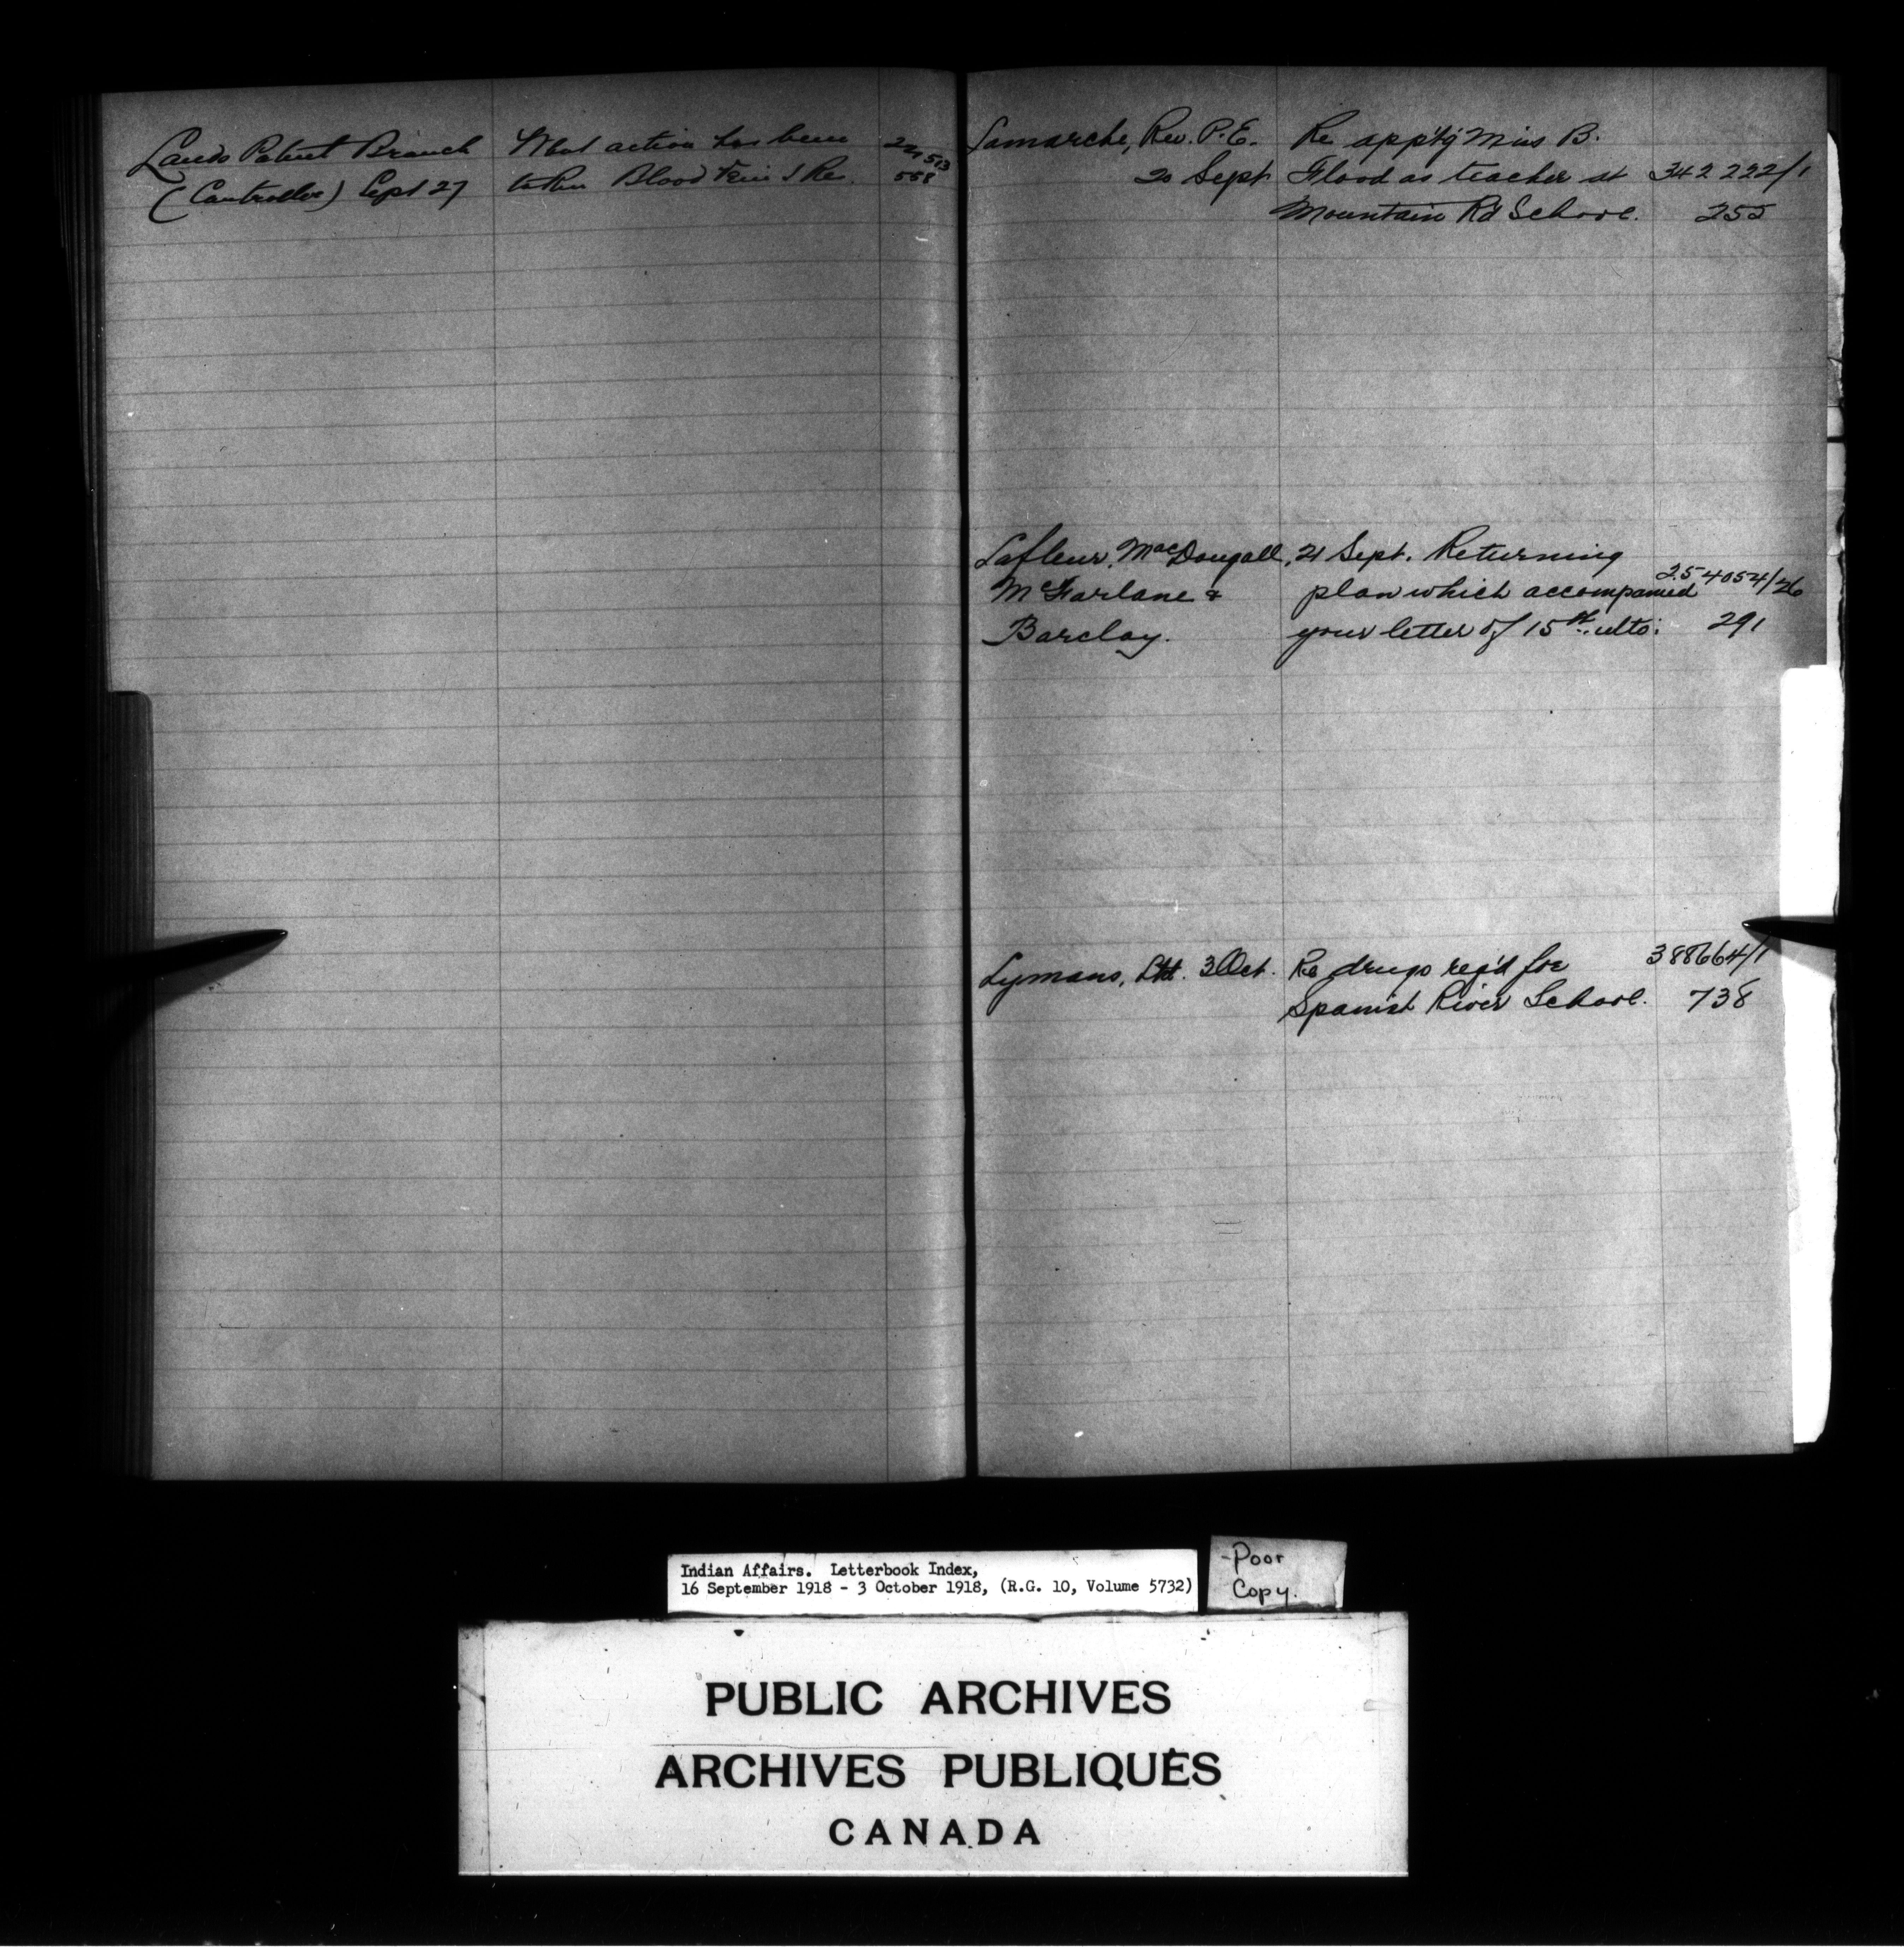 Lands Patent Branch What action has been
(Controller) Sept 27 taken Blood 558
Lamarche, Rev. P.E. Re app't'g Miss B.
20 Sept Flood as teacher at 342 222/1
Mountain Rd School. 255
Lafleur, MacDougall, 21 Sept. Returning
McFarlane & plan which accompanied 254054/26
Barclay. your letter of 15th ulto: 291
Lymans, Ltd. 3 Oct. Re drugs req'd for 388664/1
Spanish River School. 738
Indian Affairs. Letterbook Index,
16 September 1918 - 3 October 1918, (R.G. 10, Volume 5732)
-Poor
Copy.
PUBLIC ARCHIVES
ARCHIVES PUBLIQUES
CANADA